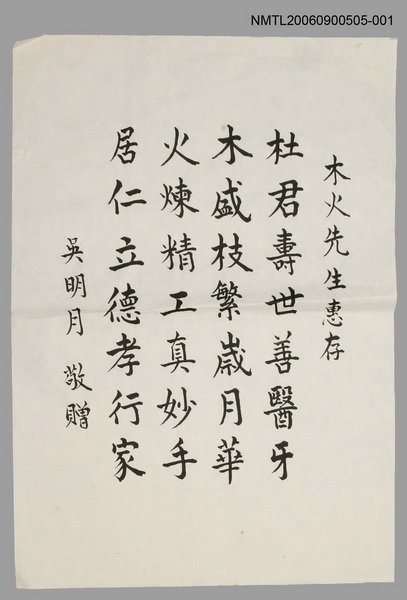 NMTL20060900505-001
木火先生惠存
杜君壽世善醫牙
木盛枝繁歲月華
火煉精工真妙手
居仁立德孝行家
吳明月 敬贈